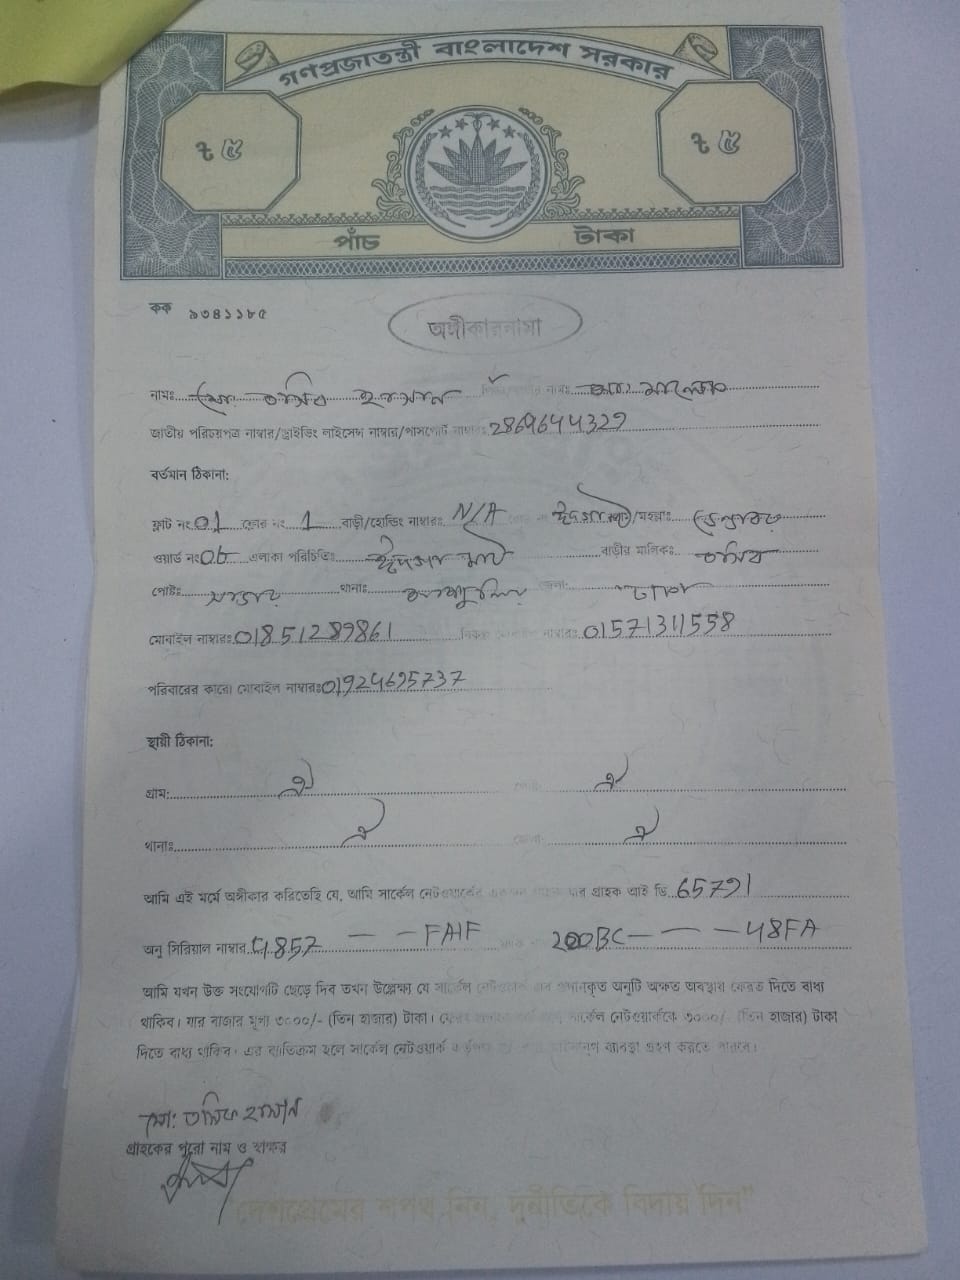 গণপ্রজাতন্ত্রী বাংলাদেশ সরকার
৳ ৫ ৳ ৫
পাঁচ টাকা
কক ৯৩৪১১৮৫
অঙ্গীকারনামা
নামঃ মোঃ তসিব হাসান নামঃ মোঃ মালেক
জাতীয় পরিচয়পত্র নাম্বার/ড্রাইভিং লাইসেন্স নাম্বার/পাসপোর্ট নাম্বারঃ 2869644329
বর্তমান ঠিকানা:
ফ্লাট নং 01 ফ্লোর নং 1 বাড়ী/হোল্ডিং নাম্বারঃ N/A ঈদগাহ মাঠ/মহল্লাঃ
ওয়ার্ড নং 08 এলাকা পরিচিতিঃ ঈদগাহ মাঠ বাড়ীর মালিকঃ তসিব
পোষ্টঃ সাভার থানাঃ আশুলিয়া জেলা: ঢাকা
মোবাইল নাম্বারঃ 01851289861 নাম্বারঃ 01571311558
পরিবারের কারো মোবাইল নাম্বারঃ 01924695737
স্থায়ী ঠিকানা:
গ্রাম: ঐ ঐ
থানাঃ ঐ জেলা: ঐ
আমি এই মর্মে অঙ্গীকার করিতেছি যে, আমি সার্কেল নেটওয়ার্কের একজন গ্রাহক যার গ্রাহক আই ডি 65791
অনু সিরিয়াল নাম্বার 4857 — — FAIF 200BC — — — 48FA
আমি যখন উক্ত সংযোগটি ছেড়ে দিব তখন উল্লেক্ষ্য যে সার্কেল নেটওয়ার্ক এর প্রদানকৃত অনুটি অক্ষত অবস্থায় ফেরত দিতে বাধ্য
থাকিব। যার বাজার মূল্য ৩০০০/- (তিন হাজার) টাকা। সার্কেল নেটওয়ার্ককে ৩০০০/- (তিন হাজার) টাকা
দিতে বাধ্য থাকিব। এর ব্যতিক্রম হলে সার্কেল নেটওয়ার্ক ব্যবস্থা গ্রহণ করতে পারবে।
মো: তসিব হাসান
গ্রাহকের পুরো নাম ও স্বাক্ষর
"দেশপ্রেমের শপথ নিন, দুর্নীতিকে বিদায় দিন"